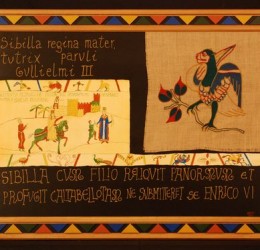 Sibilla regina mater,
tutrix parvli
Gvllielmi III
SIBILLA CVM FILIO RELIQVIT PANORMVM et
PROFVGIT CALTABELLOTAM NE SVBMITTERET SE ENRICO VI